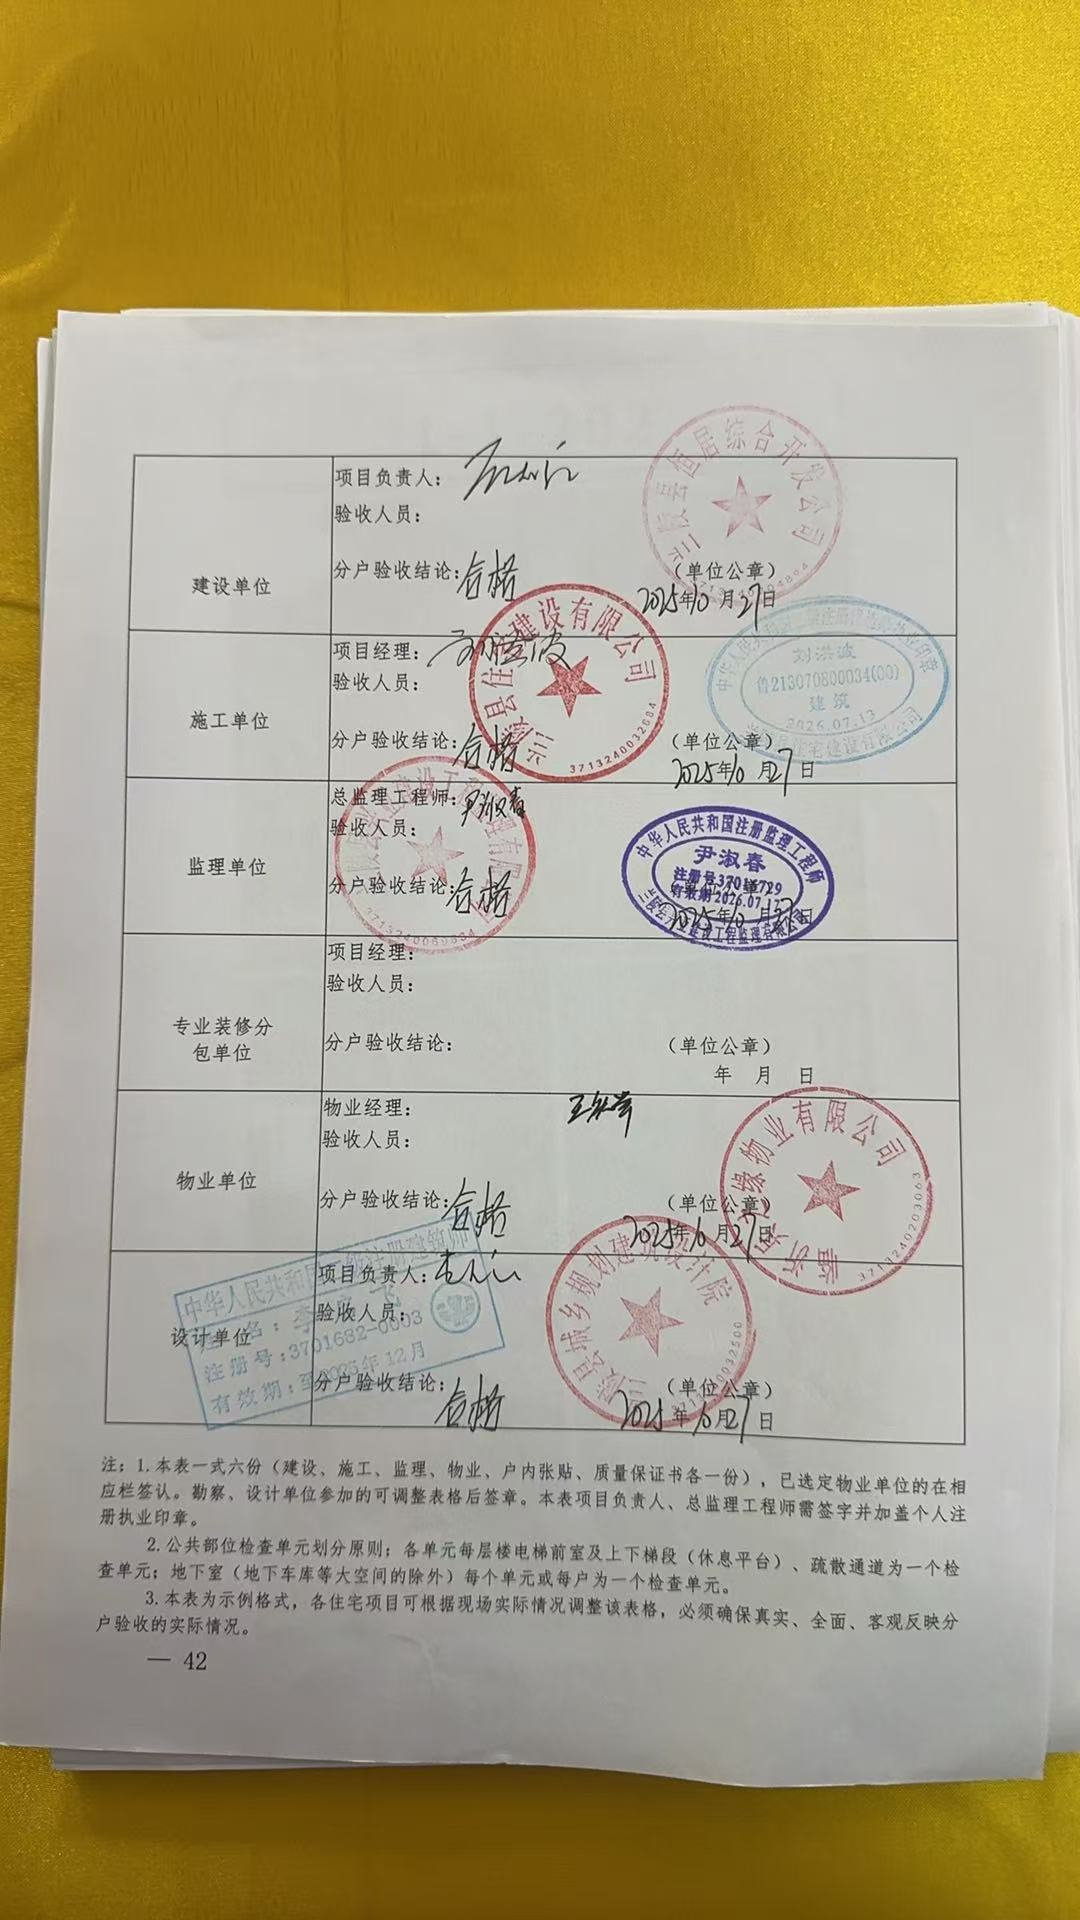 建设单位
项目负责人：
验收人员：
分户验收结论：合格
（单位公章）
2025年10月27日
兰陵县恒居综合开发公司
施工单位
项目经理：刘洪波
验收人员：
分户验收结论：合格
（单位公章）
2025年10月27日
建设有限公司
3713240032684
刘洪波
鲁213070800034(00)
建筑
2026.07.13
监理单位
总监理工程师：尹淑春
验收人员：
分户验收结论：合格
2025年10月27日
3713240069834
中华人民共和国注册监理工程师
尹淑春
有效期2026.07.17
建设工程监理有限公司
专业装修分
包单位
项目经理：
验收人员：
分户验收结论：
（单位公章）
年 月 日
物业单位
物业经理：
验收人员：
分户验收结论：合格
（单位公章）
2025年10月27日
缘物业有限公司
3713240203063
设计单位
项目负责人：
验收人员：
分户验收结论：合格
（单位公章）
2025年10月27日
兰陵县城乡规划建筑设计院
注册号：3701682-0003
有效期：至2025年12月
注：1.本表一式六份（建设、施工、监理、物业、户内张贴、质量保证书各一份），已选定物业单位的在相
应栏签认。勘察、设计单位参加的可调整表格后签章。本表项目负责人、总监理工程师需签字并加盖个人注
册执业印章。
2.公共部位检查单元划分原则：各单元每层楼电梯前室及上下梯段（休息平台）、疏散通道为一个检
查单元；地下室（地下车库等大空间的除外）每个单元或每户为一个检查单元。
3.本表为示例格式，各住宅项目可根据现场实际情况调整该表格，必须确保真实、全面、客观反映分
户验收的实际情况。
— 42